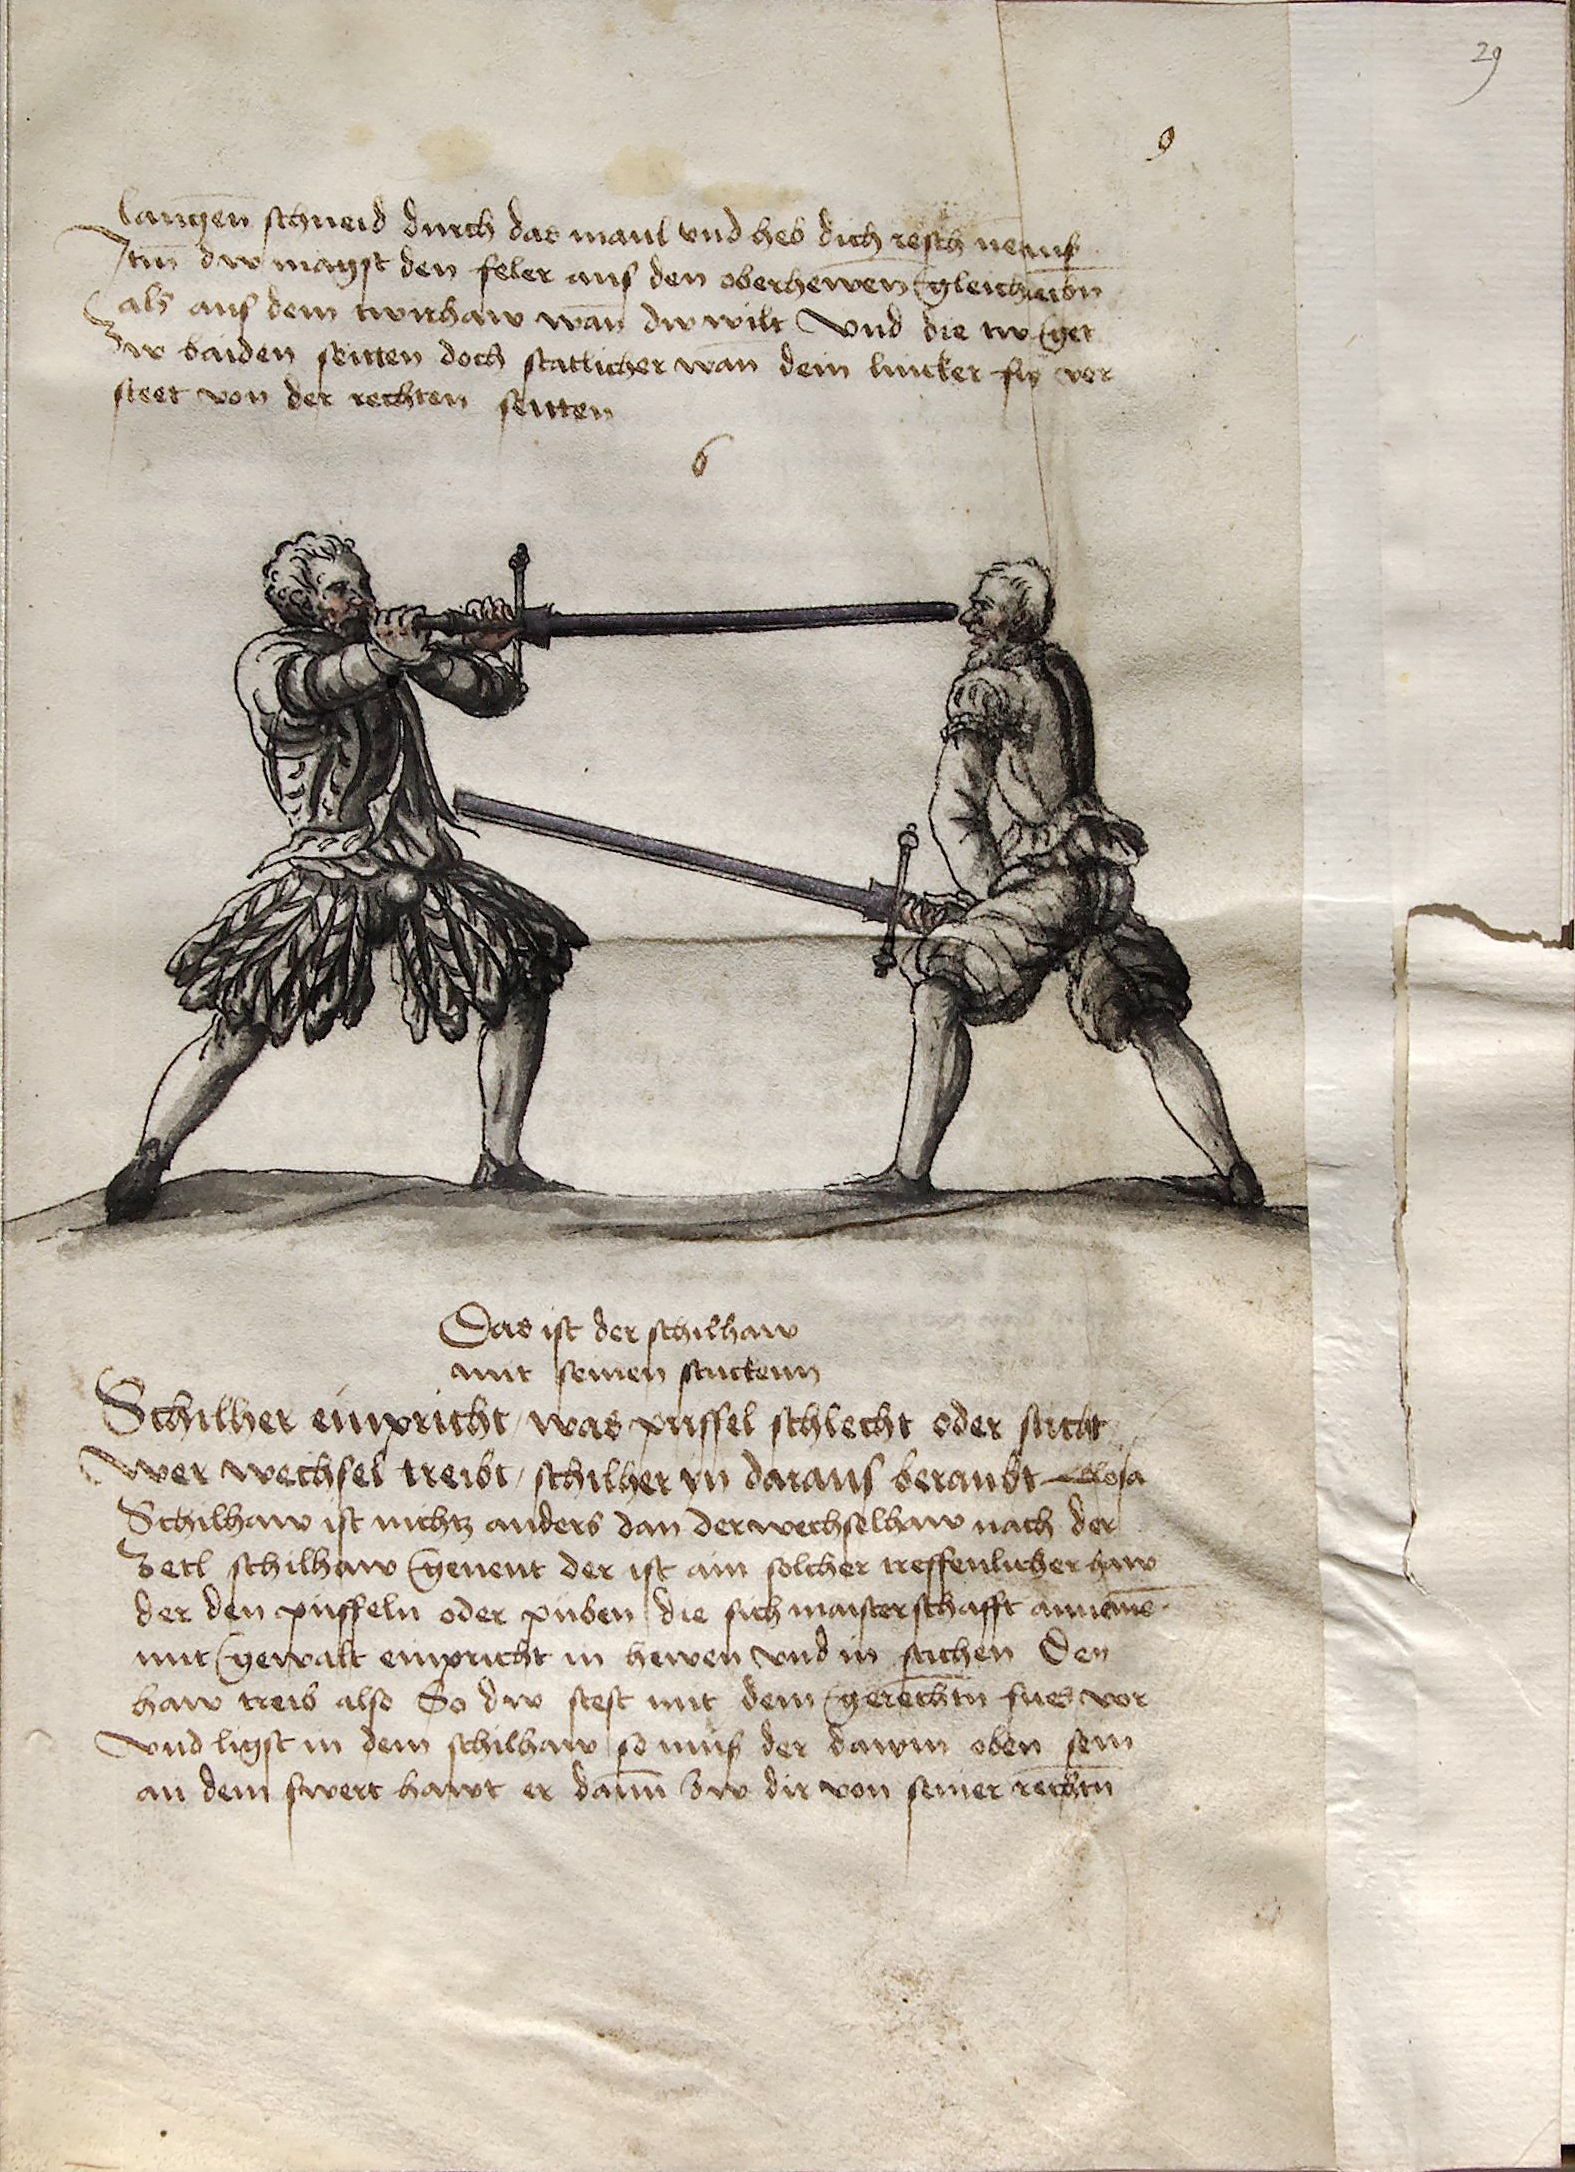 29
9
langen schneid durch das maul vnd heb dich resch
Itm̄ dw magst den feler aus den oberhewen gleich
als aus dem twirhaw wan̄ dw wilt Vnd die tw get
Zw baiden seitten doch statlicher wan̄ dein lincker fus vor
steet von der rechten seitten
6
Das ist der schilhaw
mit seinen stuckenn
Schilher einpricht / was puffel schlecht oder sticht
Wer wechsel treibt / schilher in daraus beraubt Glosa
Schilhaw ist nichtz anders dan der wechselhaw nach der
Zetl schilhaw genent der ist ain solcher treffenlicher haw
der den puffeln oder puben die sich maisterschafft
mit gewalt einpricht in hewen vnd in stichen Den
haw treib also So dw stest mit dem gerechtn̄ fues vor
vnd ligst in dem schilhaw so mus der dawm oben sein
an dem swert hawt er dann̄ Zw dir von seiner rechtn̄